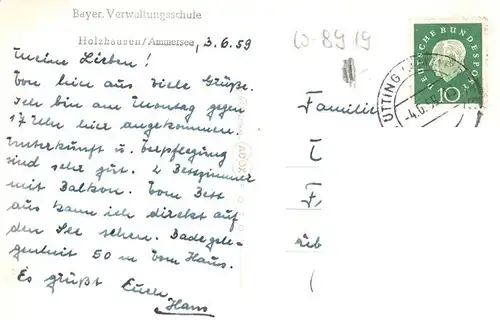 Bayer. Verwaltungsschule
Holzhausen/Ammersee, 3.6.59,
Meine Lieben!
Von hier aus viele Grüße.
Ich bin am Montag gegen
17 Uhr hier angekommen.
Unterkunft u. Verpflegung
sind sehr gut. 2 Bettzimmer
mit Balkon. Vom Bett
aus kann ich direkt auf
den See sehen. Badegele-
genheit 50 m vom Haus.
Es grüßt Euch
Hans
W-8919
DEUTSCHE BUNDESPOST
10
UTTING
-4.6.59
Familie